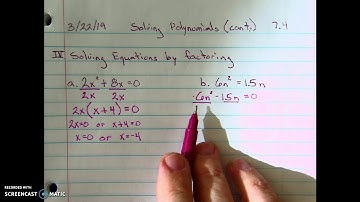 3/22/19 Solving Polynomials (cont.) 7.4
IV Solving Equations by factoring
a. 2x² + 8x = 0
2x 2x
2x(x+4) = 0
2x=0 or x+4=0
x=0 or x=-4
b. 6n² = 15n
6n² - 15n = 0
RECORDED WITH
SCREENCAST MATIC